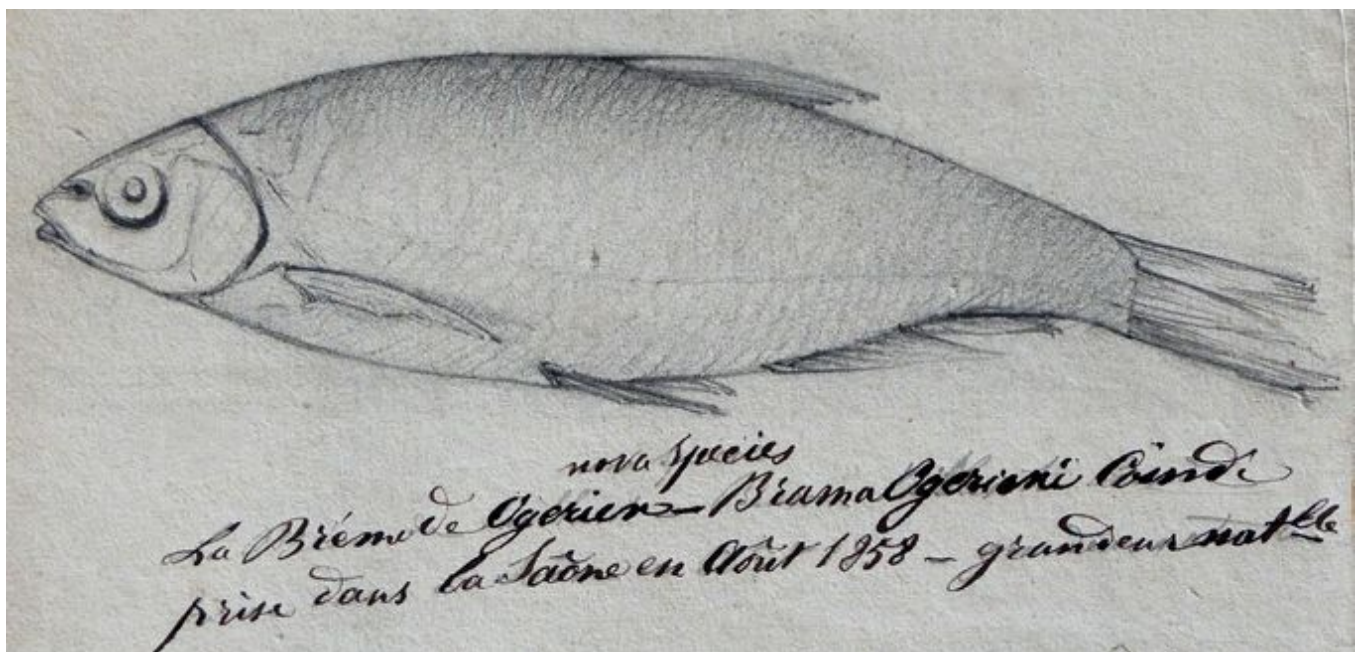 nova species
La Brême de Ogérien – Brama Ogerieni Coinde
prise dans la Saône en Août 1858 – grandeur nat.lle